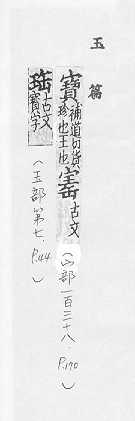 玉篇
寶 補道切貨珍也玉也 寚 古文 (宀部一百三十八. P.170)
珤 古文寶字 (玉部第七. P.44)